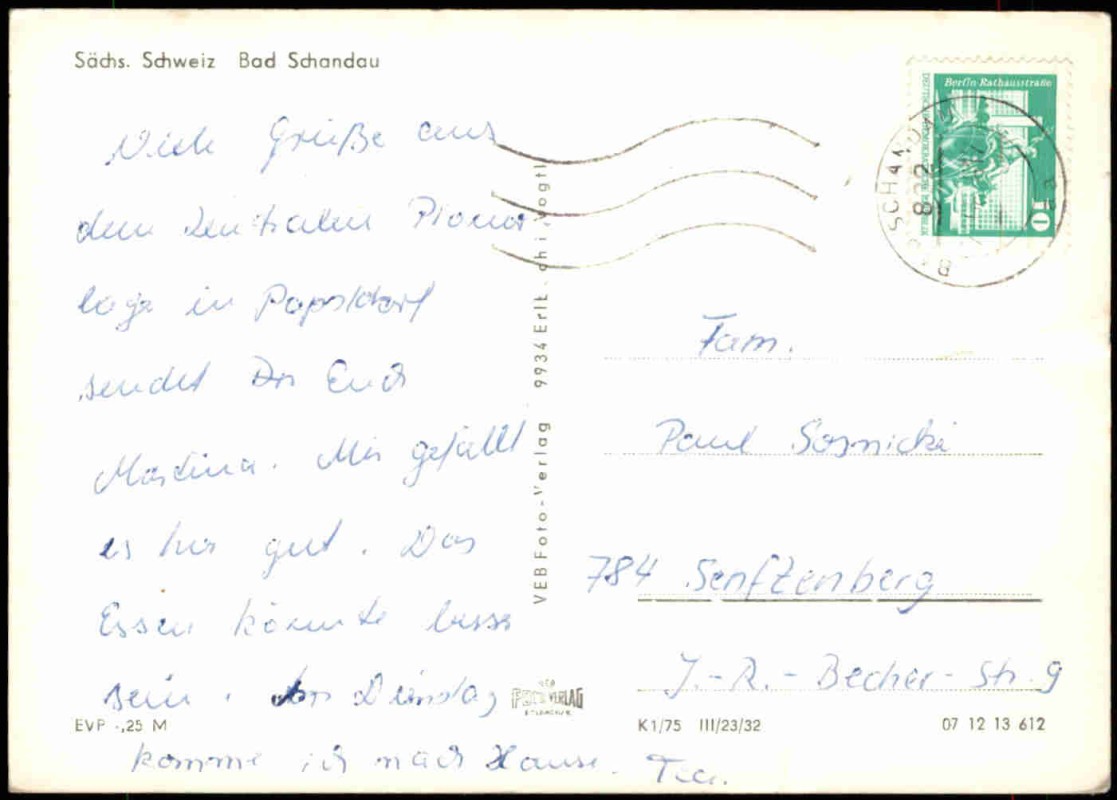 Sächs. Schweiz Bad Schandau
Viele Grüße aus
dem Zentralen Pionier
lager in Papstdorf
sendet Euch
Martina. Mir gefällt
es hier gut. Das
Essen könnte besser
sein. Am Dienstag
komme ich nach Hause.
EVP -,25 M
VEB Foto-Verlag 9934 Erlb
FOTO-VERLAG
Berlin-Rathausstraße
10
BAD SCHANDAU
832
Fam.
Paul Sosnicki
784 Senftenberg
J.-R.-Becher-Str. 9
K1/75 III/23/32
07 12 13 612